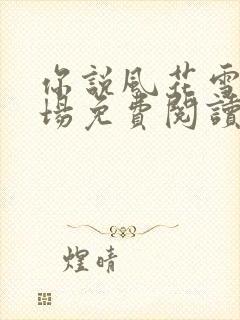 你說風花雪
場免費閱讀
煌晴